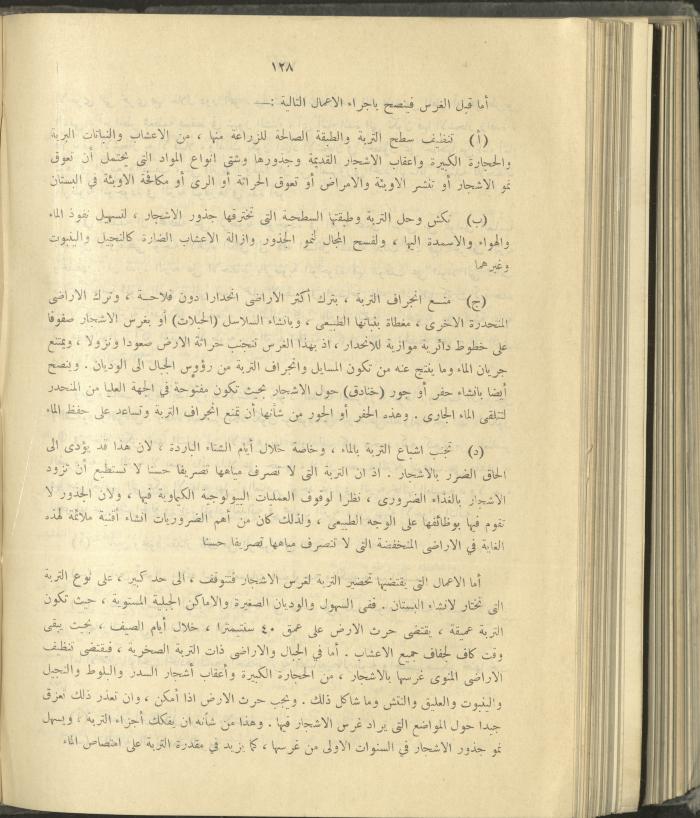 ١٢٨
أما قبل الغرس فينصح باجراء الاعمال التالية :—
(أ) تنظيف سطح التربة والطبقة الصالحة للزراعة منها ، من الاعشاب والنباتات البرية
والحجارة الكبيرة واعقاب الاشجار القديمة وجذورها وشتى انواع المواد التى يحتمل أن تعوق
نمو الاشجار أو تنشر الاوبئة والامراض أو تعوق الحراثة أو الرى أو مكافحة الاوبئة في البستان
(ب) نكش وحل التربة وطبقتها السطحية التى تخترقها جذور الاشجار ، لتسهيل نفوذ الماء
والهواء والاسمدة اليها ، ولفسح المجال لنمو الجذور وازالة الاعشاب الضارة كالنجيل والينبوت
وغيرهما
(ج) منع انجراف التربة ، بترك أكثر الاراضى انحدارا دون فلاحة ، وترك الاراضى
المنحدرة الاخرى ، مغطاة بنباتها الطبيعى ، وبانشاء السلاسل (الحبلات) أو بغرس الاشجار صفوفا
على خطوط دائرية موازية للانحدار ، اذ بهذا الغرس تتجنب حراثة الارض صعودا ونزولا ، ويمتنع
جريان الماء وما ينتج عنه من تكون المسايل وانجراف التربة من رؤوس الجبال الى الوديان . وينصح
أيضا بانشاء حفر أو جور (خنادق) حول الاشجار بحيث تكون مفتوحة في الجهة العليا من المنحدر
لتتلقى الماء الجارى . وهذه الحفر أو الجور من شأنها أن تمنع انجراف التربة وتساعد على حفظ الماء
(د) تجنب اشباع التربة بالماء ، وخاصة خلال أيام الشتاء الباردة ، لان هذا قد يؤدى الى
الحاق الضرر بالاشجار . اذ ان التربة التى لا تصرف مياهها تصريفا حسنا لا تستطيع أن تزود
الاشجار بالغذاء الضرورى ، نظرا لوقوف العمليات البيولوجية الكيماوية فيها ، ولان الجذور لا
تقوم فيها بوظائفها على الوجه الطبيعى ، ولذلك كان من أهم الضروريات انشاء أقنية ملائمة لهذه
الغاية في الاراضى المنخفضة التى لا تنصرف مياهها تصريفا حسنا
أما الاعمال التى يقتضيها تحضير التربة لغرس الاشجار فتتوقف ، الى حد كبير ، على نوع التربة
التى تختار لانشاء البستان . ففى السهول والوديان الصغيرة والاماكن الجبلية المستوية ، حيث تكون
التربة عميقة ، يقتضى حرث الارض على عمق ٤٠ سنتيمترا ، خلال أيام الصيف ، بحيث يبقى
وقت كاف لجفاف جميع الاعشاب . أما في الجبال والاراضى ذات التربة الصخرية ، فيقتضى تنظيف
الاراضى المنوى غرسها بالاشجار ، من الحجارة الكبيرة وأعقاب أشجار السدر والبلوط والنجيل
والينبوت والعليق والنتش وما شاكل ذلك . ويجب حرث الارض اذا أمكن ، وان تعذر ذلك تعزق
جيدا حول المواضع التى يراد غرس الاشجار فيها . وهذا من شأنه ان يفكك أجزاء التربة ، ويسهل
نمو جذور الاشجار في السنوات الاولى من غرسها ، كما يزيد في مقدرة التربة على امتصاص الماء